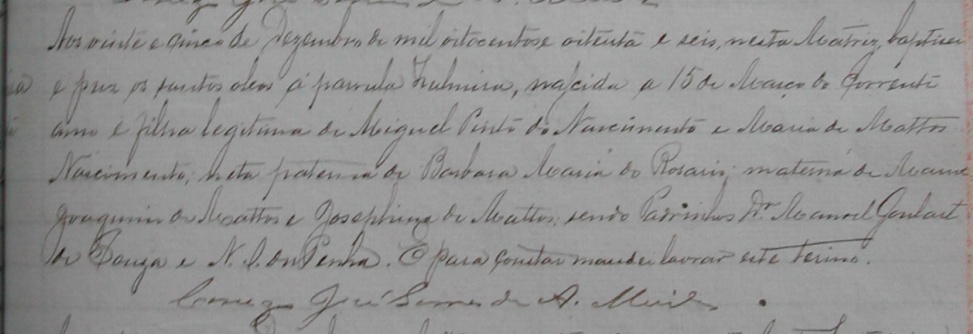 Aos vinte e cinco de Dezembro de mil oitocentos e oitenta e seis, nesta Matriz, baptisei
e puz os santos oleos á parvula Zulmira, nascida a 15 de Março do corrente
anno e filha legitima de Miguel Pinto do Nascimento e Maria de Mattos
Nascimento; neta paterna de Barbara Maria do Rosario; materna de
Joaquim de Mattos e Josephina de Mattos; sendo Padrinhos Dr Manoel Goulart
de Souza e N. S. da Penha. E para constar mandei lavrar este termo.
Conego José Gomes de A.